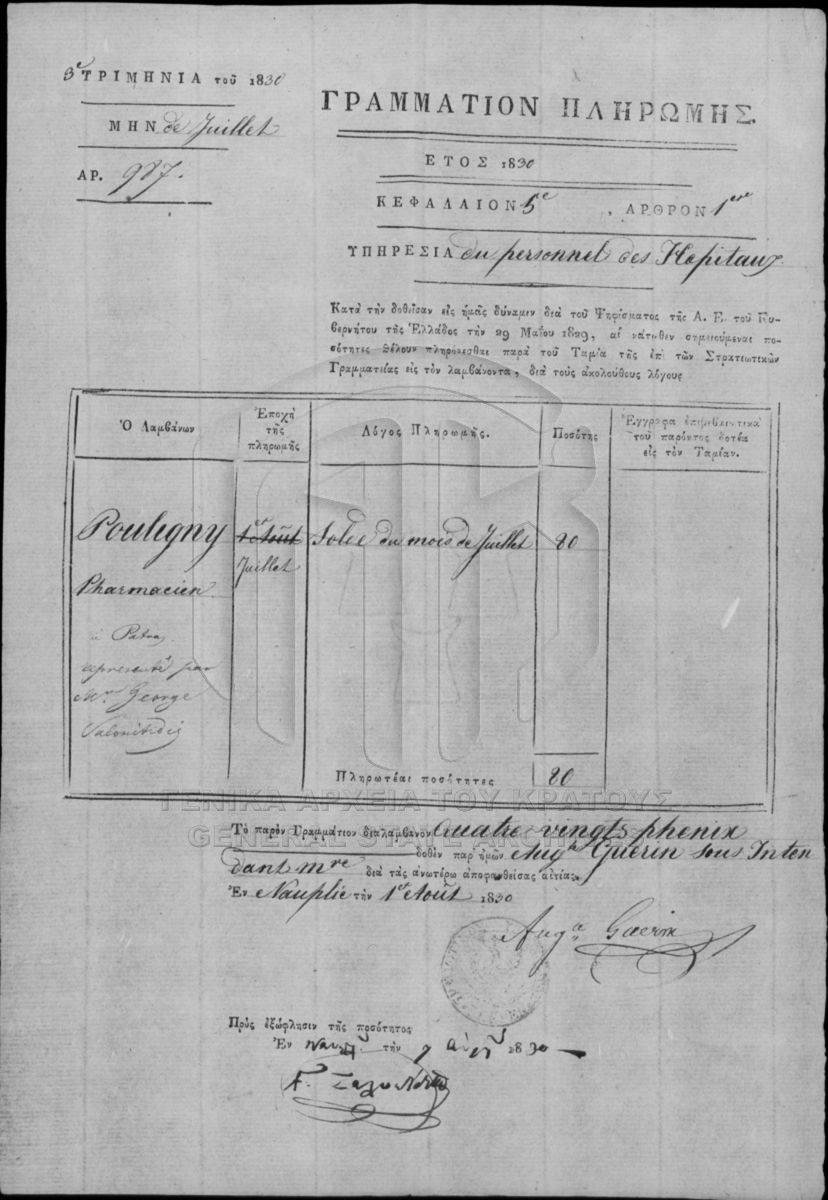 3e ΤΡΙΜΗΝΙΑ τοῦ 1830
ΜΗΝ de Juillet
ΑΡ. 987.
ΓΡΑΜΜΑΤΙΟΝ ΠΛΗΡΩΜΗΣ.
ΕΤΟΣ 1830
ΚΕΦΑΛΑΙΟΝ 5e , ΑΡΘΡΟΝ 1ere
ΥΠΗΡΕΣΙΑ du personnel des Hopitaux
Κατὰ τὴν δοθεῖσαν εἰς ἡμᾶς δύναμιν διὰ τοῦ Ψηφίσματος τῆς Α. Ε. τοῦ Κυ-
βερνήτου τῆς Ἑλλάδος τὴν 29 Μαΐου 1829, αἱ κάτωθεν σημειούμεναι πο-
σότητες θέλουν πληρόνεσθαι παρὰ τοῦ Ταμία τῆς ἐπὶ τῶν Στρατιωτικῶν
Γραμματείας εἰς τὸν λαμβάνοντα, διὰ τοὺς ἀκολούθους λόγους
Ὁ Λαμβάνων
Ἐποχὴ τῆς πληρωμῆς
Λόγος Πληρωμῆς.
Ποσότης
Ἔγγραφα ἐπιβεβαιωτικὰ τοῦ παρόντος δοτέα εἰς τὸν Ταμίαν.
Pouligny 1er Août Solde du mois de Juillet 80
Juillet
Pharmacien
à Patras
représenté par
Mr George
Πληρωτέαι ποσότητες 80
ΓΕΝΙΚΑ ΑΡΧΕΙΑ ΤΟΥ ΚΡΑΤΟΥΣ
GENERAL STATE ARCHIVES
Τὸ παρὸν Γραμμάτιον διαλαμβάνον Quatre vingts phenix
δοθὲν παρ' ἡμῶν Augin Guerin Sous Inten
dant mre διὰ τὰς ἀνωτέρω ἀποφανθείσας αἰτίας.
Ἐν Nauplie τὴν 1er Août 1830
Augn Guerin
Πρὸς ἐξώφλησιν τῆς ποσότητος
Ἐν Ναυπ τὴν 7 Αὐγ 1830